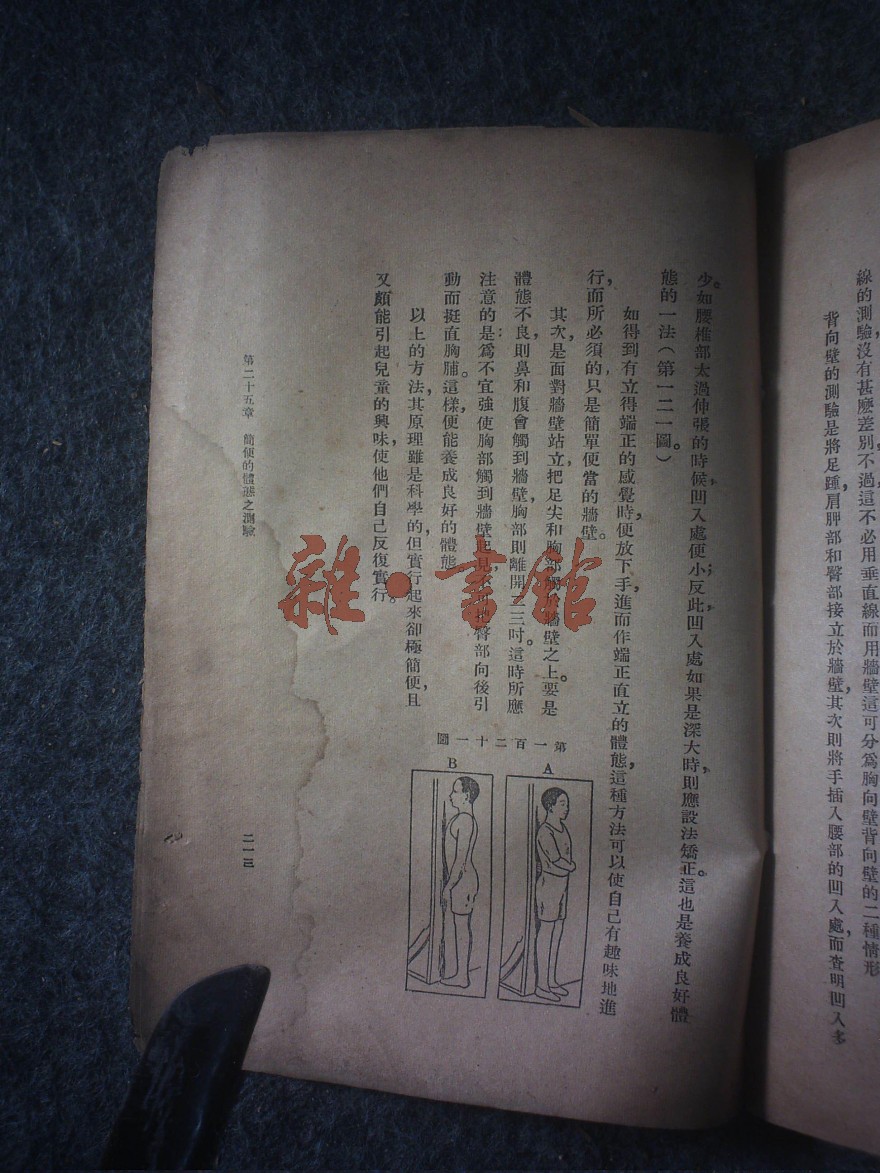 線的測驗，沒有甚麽差別，不過這不必用垂直線而用牆壁這可分爲胸向壁背向壁的二種情形
背向壁的測驗是將足踵，肩胛部和臀部接立於牆壁，其次則將手插入腰部的凹入處而查明凹入多
少。如腰椎部太過伸張的時候，凹入處便小；反此，凹入處如果是深大時，則應設法矯正。這也是養成良好體
態的一法（第一二一圖。）
如得到有立得端正的感覺時，便放下手，進而作端正直立的體態，這種方法可以使自己有趣味地進
行，而所必須的只是簡單便當的牆壁。
其次，是面對牆壁站立，把足尖和胸部觸於牆壁之上。要是
體態不良，則鼻和腹會觸到牆壁，胸部則離開二三吋。這時所應
注意的是：爲不宜強使胸部觸到牆壁起見，地臀部向後引
動而挺直胸脯。這樣，便能養成良好的體態
以上的方法，其原理雖是科學的，但實行起來卻極簡便，且
又頗能引起兒童的興味，使他們自己反復實行。
第一百二十一圖
A
B
第二十五章　簡便的體態之測驗
二一三
雜·書館